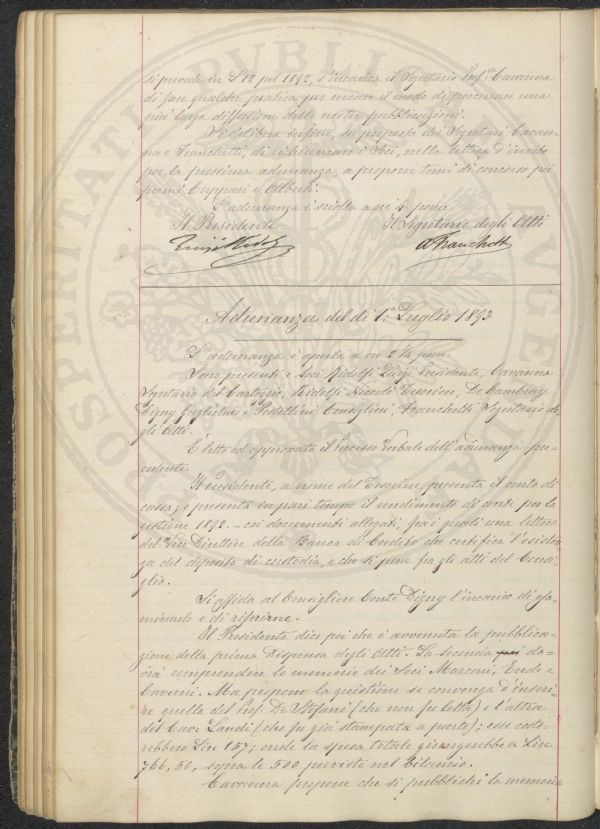 si prende in L 12 pel 1892, s'incarica il Segretario Prof. Cavanna
di fare qualche pratica per cercare il modo di procurare una
più larga diffusione delle nostre pubblicazioni.
Si delibera infine, su proposta dei Segretari Cavan-
na e Franchetti, di richiamare i Soci, nella lettera d'invito
per la prossima adunanza, a proporre temi di concorso pei
premi Cuppari e Alberti.
L'adunanza è sciolta a ore 4 pom.
Il Presidente Il Segretario degli Atti
Luigi Ridolfi A Franchetti
Adunanza del dì 1° Luglio 1893
L'adunanza è aperta a ore 2 ¼ pom.
Sono presenti i Soci Ridolfi Luigi Presidente, Cavanna
Segretario del Carteggio, Ridolfi Niccolò Tesoriere, De Cambray
Digny Guglielmo e Pestellini Consiglieri, Franchetti Segretario de-
gli Atti.
È letto ed approvato il Processo Verbale dell'adunanza pre-
cedente.
Il Presidente, a nome del Tesoriere, presenta il conto di
cassa; e presenta in pari tempo il rendimento di conti per la
gestione 1892. - coi documenti allegati, fra i quali una lettera
del Vice Direttore della Banca di Credito che certifica l'esisten-
za del deposito di custodia, e che si pone fra gli atti del Consi-
glio.
Si affida al Consigliere Conte Digny l'incarico di esa-
minarlo e di riferirne.
Il Presidente dice poi che è avvenuta la pubblica-
zione della prima Dispensa degli Atti. La seconda do-
vrà comprendere le memorie dei Soci Marconi, Ende
Caverni. Ma propone la quistione se convenga d'inseri-
re quella del Prof. De Stefani (che non fu letta) e l'altra
del Cav. Landi (che fu già stampata a parte); esse coste-
rebbero Lire 157; onde la spesa totale giungerebbe a Lire
766,50, sopra le 500 previste nel Bilancio.
Cavanna propone che si pubblichi la memoria